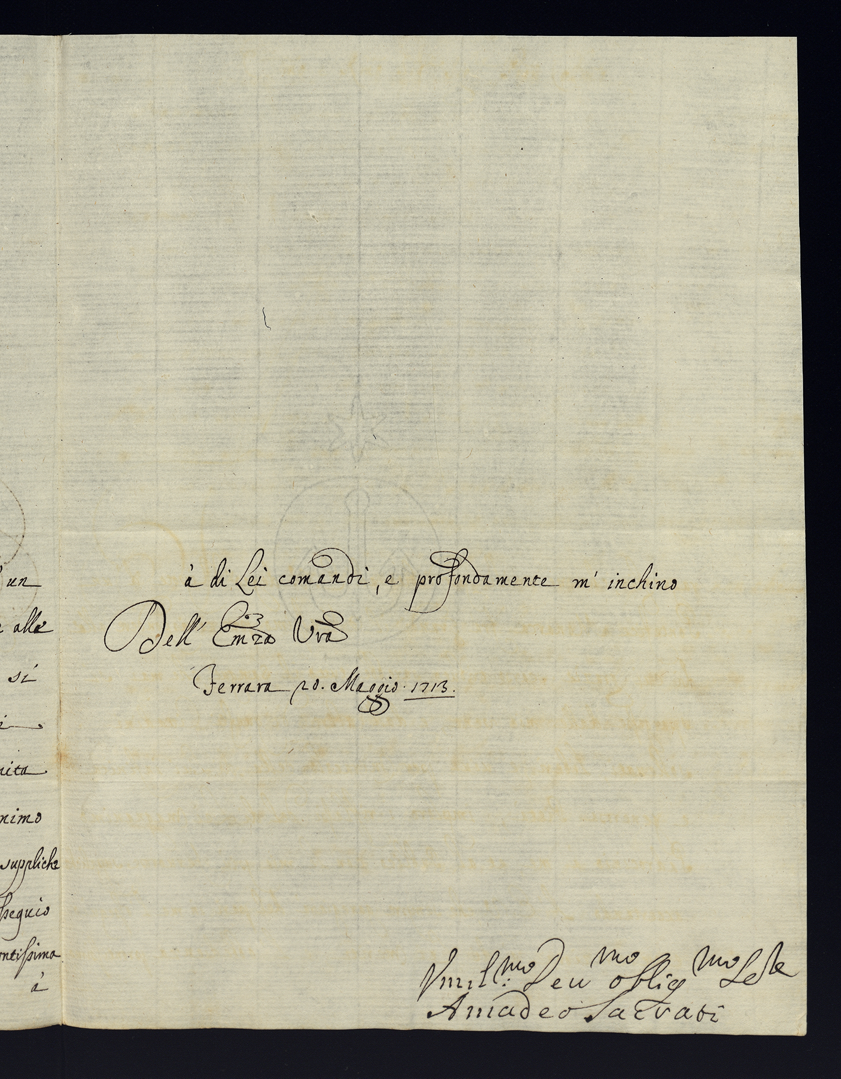 un
alle
si
nita
nimo
suppliche
sequio
ontissima
à
à di Lei comandi, e profondamente m' inchino
Dell' Emza Vra
Ferrara 20. Maggio 1713.
Vmil.mo Deu.mo oblig.mo
Amadeo Sacrati